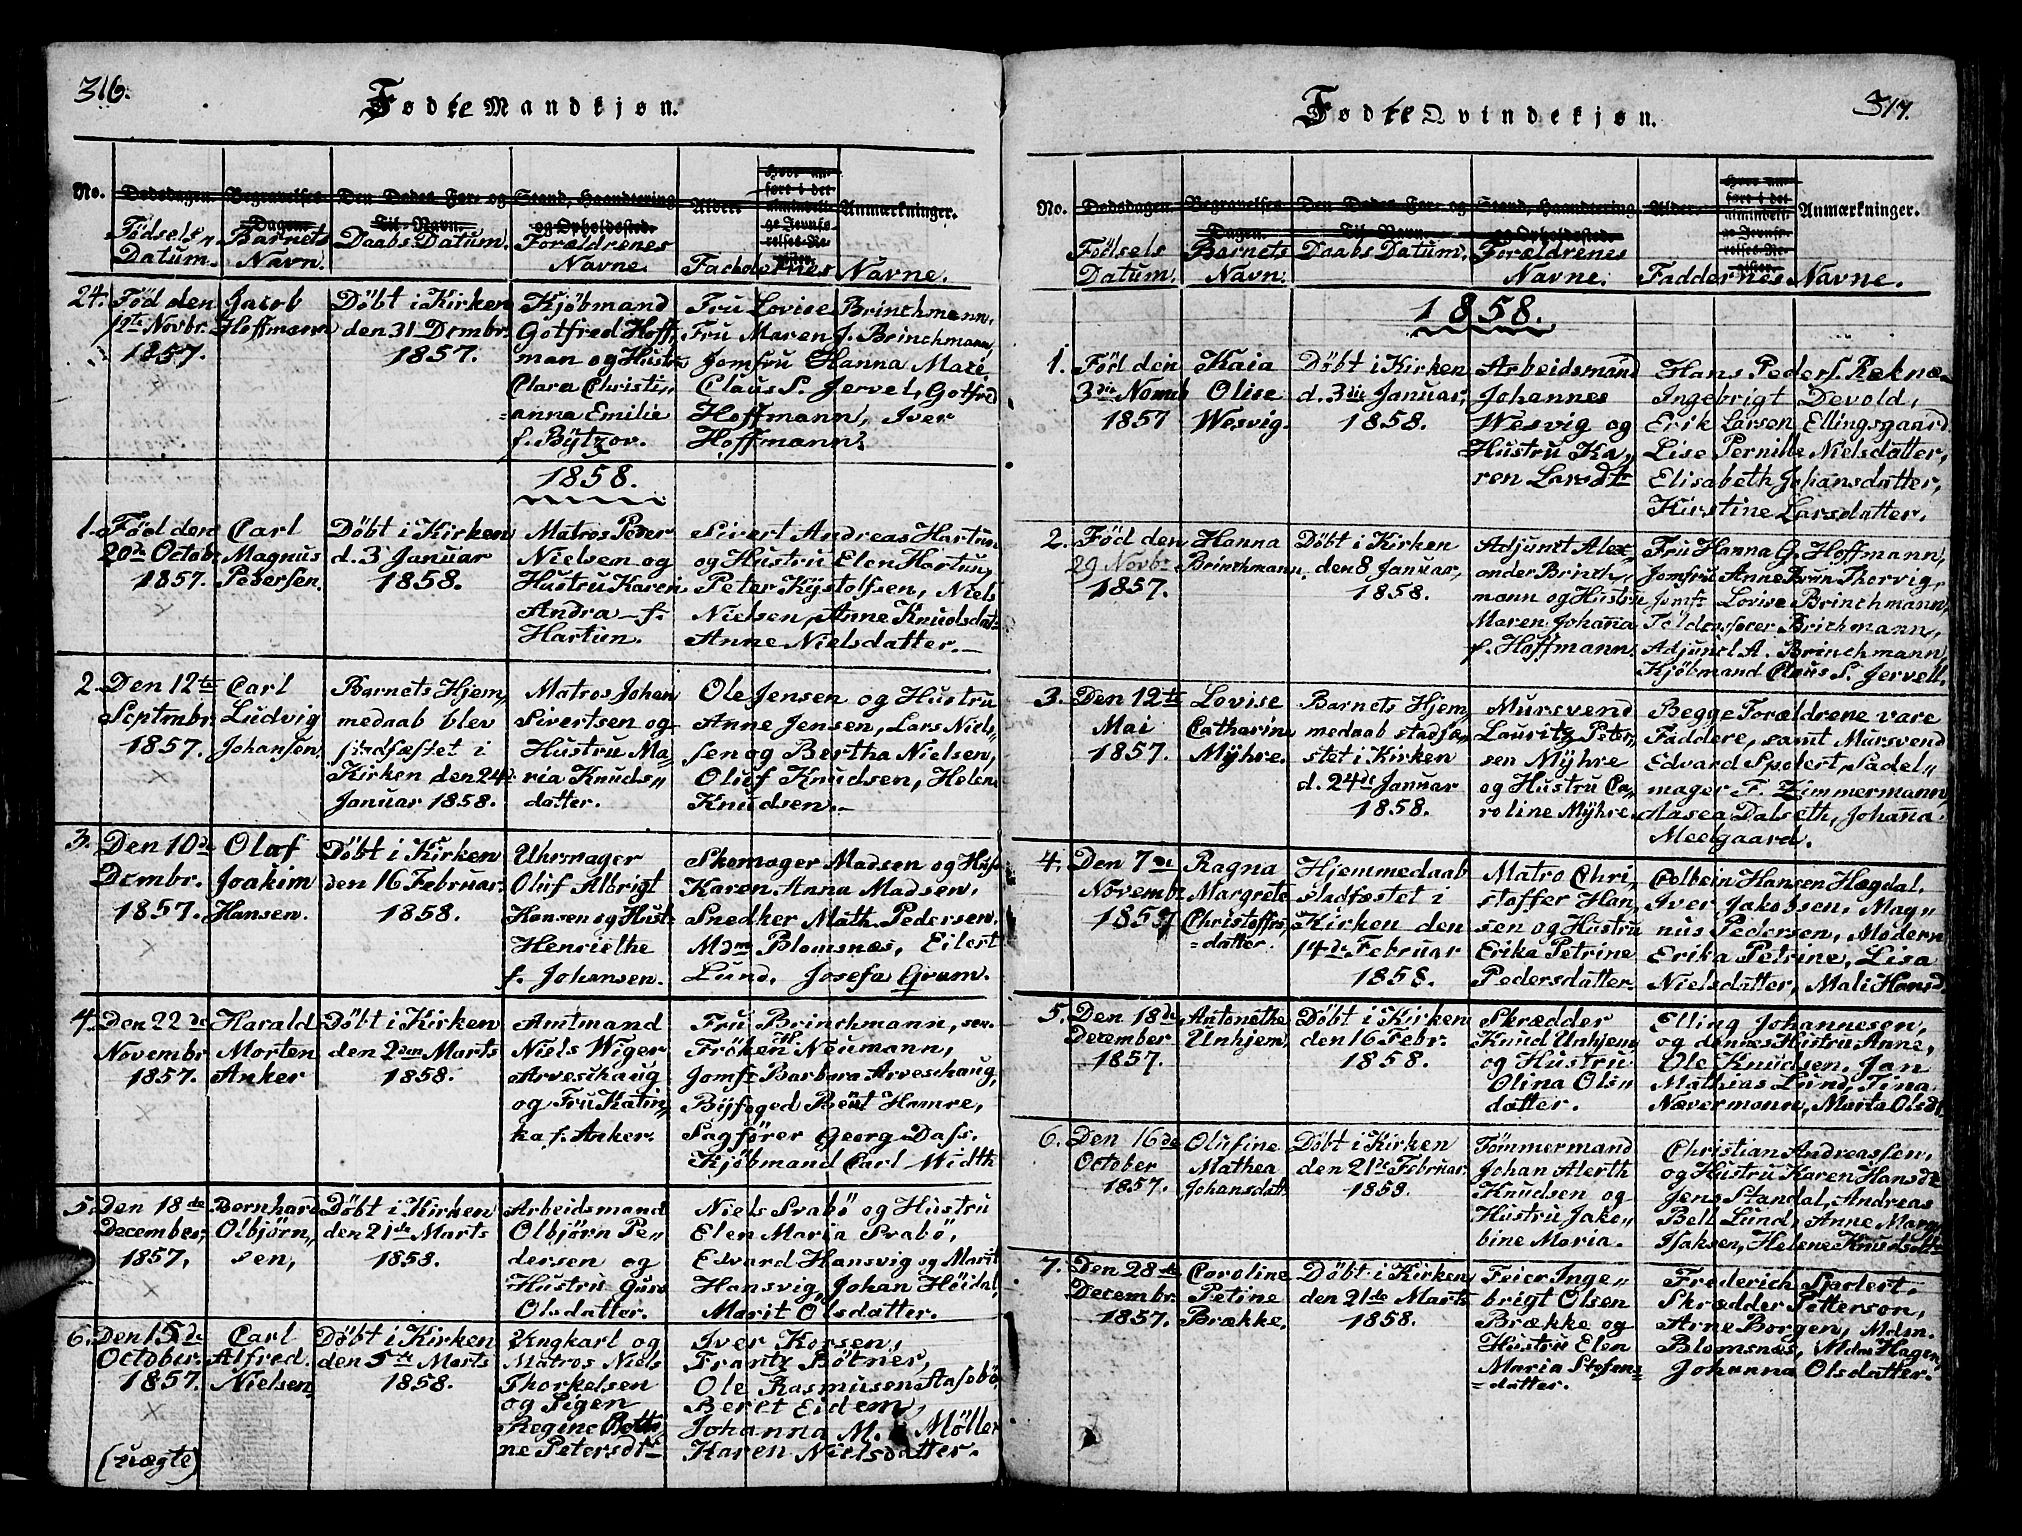 316.
Fødte Mandkjøn.
No.
Dødsdagen
Begravelses Dagen.
Den Dødes For- og Til-Navn.
Stand, Haandtering og Opholdssted.
Alder.
Hvor anført i det almindelige Jevnførelses-Register.
Anmærkninger.
Fødsels Datum.
Barnets Navn.
Daabs Datum.
Forældrenes Navne.
Faddernes Navne.
24. Født den
12te Novbr.
1857.
Jacob
Hoffmann
Døbt i Kirken
den 31 Dcmbr.
1857.
Kjøbmand
Gotfred Hoff„
man og Hustru
Clara Christi„
=anna Emilie
f. Bÿtzov.
Fru Lovise Brinchmann,
Fru Maren J. Brinchmann,
Jomfru Hanna Marie
Claus S. Jervel, Gotfred
Hoffmann, Iver
Hoffmann.
1858.
1. Fød den
20de Octobr.
1857.
Carl
Magnus
Pedersen.
Døbt i Kirken
d. 3 Januar
1858.
Matros Peder
Nielsen og
Hustru Karen
Andra f.
Hartun.
Sivert Andreas Hartun
og Hustru Elen Hartun,
Peter Kÿstolfsen, Niels
Nielsen, Anne Knudsdat=
Anne Nielsdatter.
2. Den 12te
Septmbr.
1857.
Carl
Ludvig
Johansen.
Barnets Hjem„
medaab blev
stadfæstet i
Kirken den 24de
Januar 1858.
Matros Johan
Sivertsen og
Hustru Ma„
ria Knuds„
datter.
Ole Jensen og Hustru
Anne Jensen, Lars Niel„
sen og Bertha Nielsen,
Oluf Knudsen, Helene
Knudsen.
3. Den 10de
Dcmbr.
1857.
Olaf
Joakim
Hansen.
Døbt i Kirken
den 16 Februar.
1858.
Uhrmager
Oluf Albrigt
Hansen og Hust.
Henriethe
f. Johansen.
Skomager Madsen og Hus.
Karen Anna Madsen,
Snedker Math. Pedersen.
Mdm Blomsnæs, Eilert
Lund, Josefa Gram.
4. Den 22de
Novembr
1857.
Harald
Morten
Anker
Døbt i Kirken
den 2den Marts
1858.
Amtmand
Niels Wiger
Arveschaug
og Fru Katin„
ka f. Anker.
Fru Brinchmann, sen.
Frøken H. Neumann,
Jomfr Barbara Arveschaug,
Bÿfoged Bent Hamre,
Sagfører Georg Dass.
Kjøbmand Carl Midth
5. Den 18de
December
1857.
Bernhard
Olbjørn„
sen,
Døbt i Kirken
den 21de Marts
1858.
Arbeidsmand
Olbjørn Pe„
dersen og
Hustru Guro
Olsdatter.
Niels Svabø og Hustru
Elen Maria Svabø,
Edvard Hansvig og Marit
Hansvig, Johan Høidal,
Marit Olsdatter.
6. Den 15de
October
1857.
(uægte)
Carl
Alfred
Nielsen
Døbt i Kirken
den 5te Marts
1858.
Ungkarl og
Matros Niels
Thorkelsen
og Pigen
Regine Beth„
ne Petersdtr
Iver Korsen,
Frantz Bøtner,
Ole Rasmusen Stasebø
Beret Eidem,
Johanna M. Møller
Karen Nielsdatter.
317.
Fødte Qvindekjøn.
No.
Dødsdagen
Begravelses Dagen.
Den Dødes For- og Til-Navn.
Stand, Haandtering og Opholdssted.
Alder.
Hvor anført i det almindelige Jevnførelses-Register.
Anmærkninger.
Fødsels Datum.
Barnets Navn.
Daabs Datum.
Forældrenes Navne.
Faddernes Navne.
1858.
1. Fød den
3die Novmb
1857
Kaia
Olise
Wesvig.
Døbt i Kirken
d. 3die Januar,
1858.
Arbeidsmand
Johannes
Wesvig og
Hustru Ka„
ren Larsdtr
Hans Peders. Reknæ
Ingebrigt Devold,
Erik Larsen Ellingsgaard.
Lise Pernille Nielsdatter,
Elisabeth Johansdatter,
Kirstine Larsdatter.
2. Fød den
29 Novbr.
1857.
Hanna
Brinchmann.
Døbt i Kirken
den 8 Januar,
1858.
Adjunct Alex„
ander Brinch„
mann og Hustru
Maren Johana
f. Hoffmann.
Fru Hanna G. Hoffmann,
Jomfru Anne Brun Thorvig,
Jomfr Lovise Brinchmann,
Toldcasserer Brichmann,
Adjunct A. Brinchmann,
Kjøbmand Claus S. Jervell.
3. Den 12te
Mai
1857.
Lovise
Catharine
Mÿhre.
Barnets Hjem„
medaab stadfæ„
stet i Kirken
d. 24de Januar
1858.
Mursvend
Lauritz Peter„
sen Mÿhre
og Hustru Ca„
roline Mÿhre.
Begge Forældrene vare
Faddere, samt Mursvend
Edvard Spodert, Sadel„
mager F. Zimmermann,
Aasea Dalseth, Johana
Meelgaard.
4. Den 7de
Novembr
1857
Ragna
Margrete
Christoffers„
=datter.
Hjemmedaab
stadfæstet i
Kirken den
14de Februar
1858.
Matro Chri„
stoffer Han„
sen og Hustru
Erike Petrine
Pedersdatter
Colbein Hansen Hægdal.
Iver Jakobsen, Mag„
nus Pedersen, Modern
Erika Petrine, Lisa
Nielsdatter, Mali Hansd.
5. Den 18de
December
1857.
Antonethe
Unhjem
Døbt i Kirken
den 16 Febr.
1858.
Skrædder
Knud Unhjem
og Hustru
Olina Ols„
datter.
Elling Johannesen,
og dennes Hustru Anne,
Ole Knudsen, Jan
Mathias Lund, Tina
Nævermann, Marta Olsdt.
6. Den 16de
October
1857.
Olufine
Mathea
Johansdatt.
Døbt i Kirken
den 21de Februar
1858.
Tømmermand
Johan Alerth
Knudsen og
Hustru Jako„
bine Maria.
Christian Andreassen,
og Hustru Karen Hansdt
Jens Standal, Andreas
Bell Lund, Anne Margr
Isaksen, Helene Knudsdtr
7. Den 28de
Decembr.
1857.
Caroline
Petine
Brække.
Døbt i Kirken
den 21de Marts
1858.
Feier Inge„
brigt Olsen
Brække og
Hustru Elen
Maria Stefans=
=datter.
Frederich Spodert,
Skrædder Petterson,
Arne Borgen, Mdm.
Blomsnæs, Mdm Hagen,
Johanna Olsdatter.